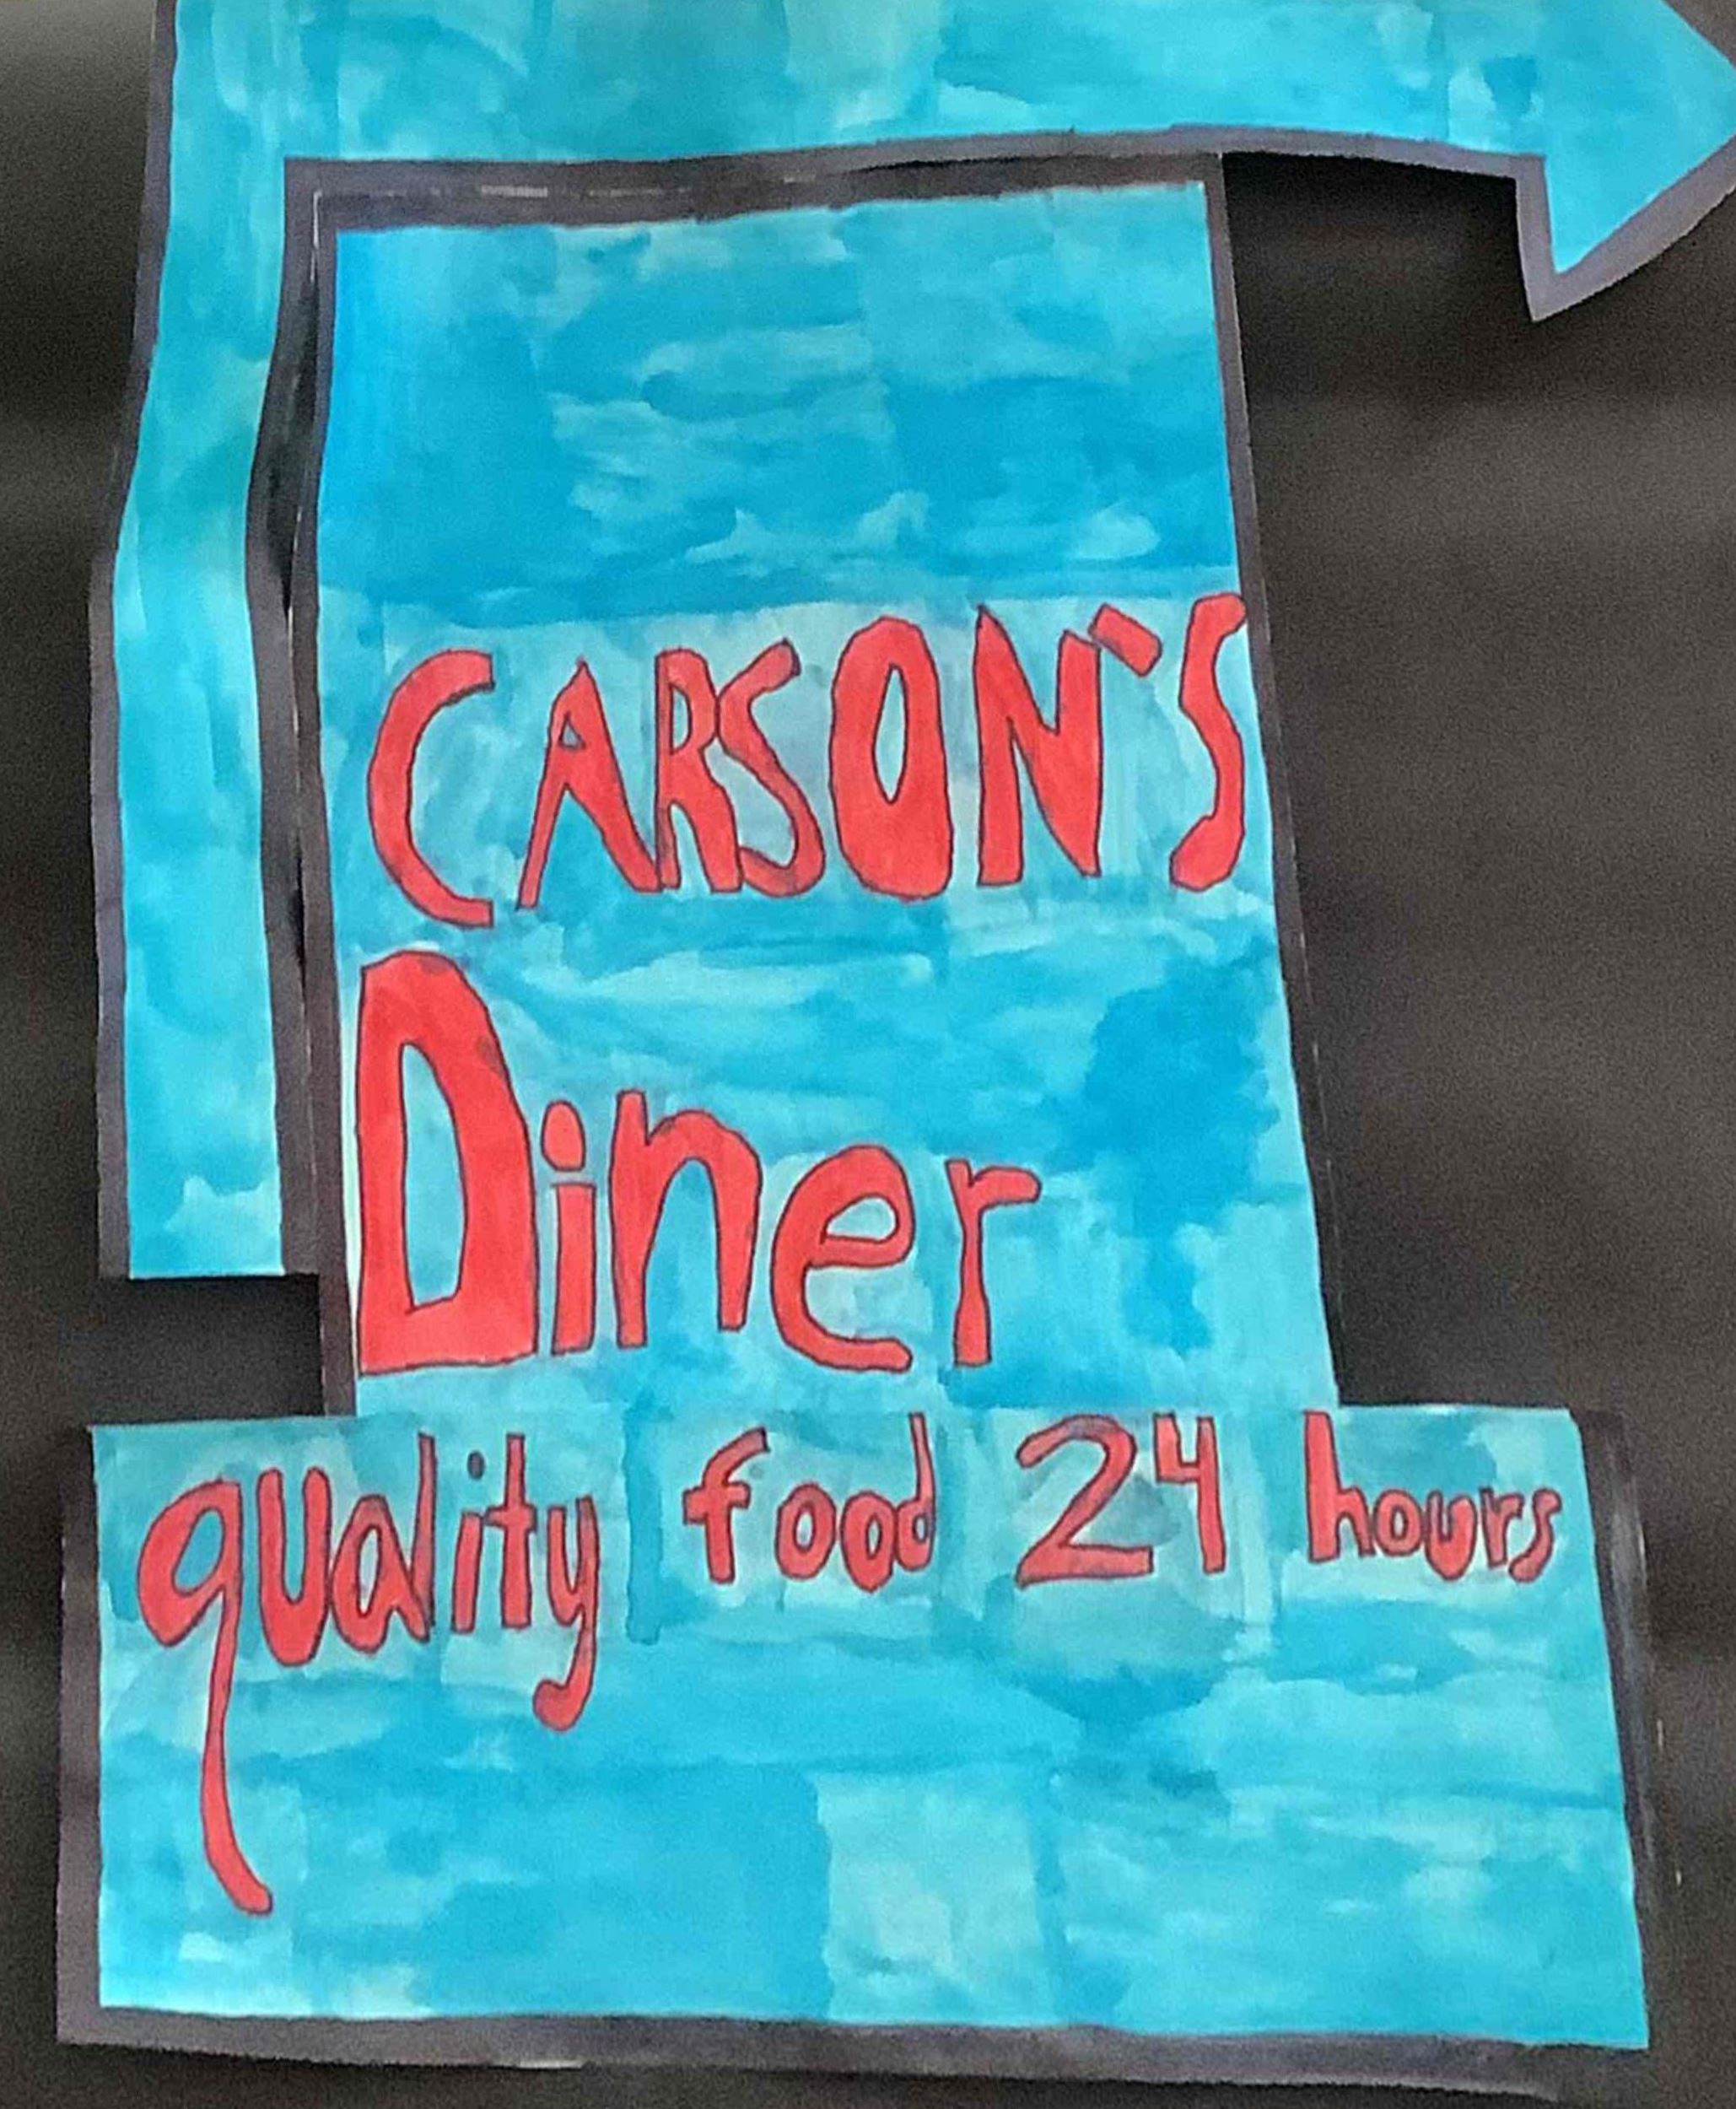 CARSON'S
Diner
quality food 24 hours